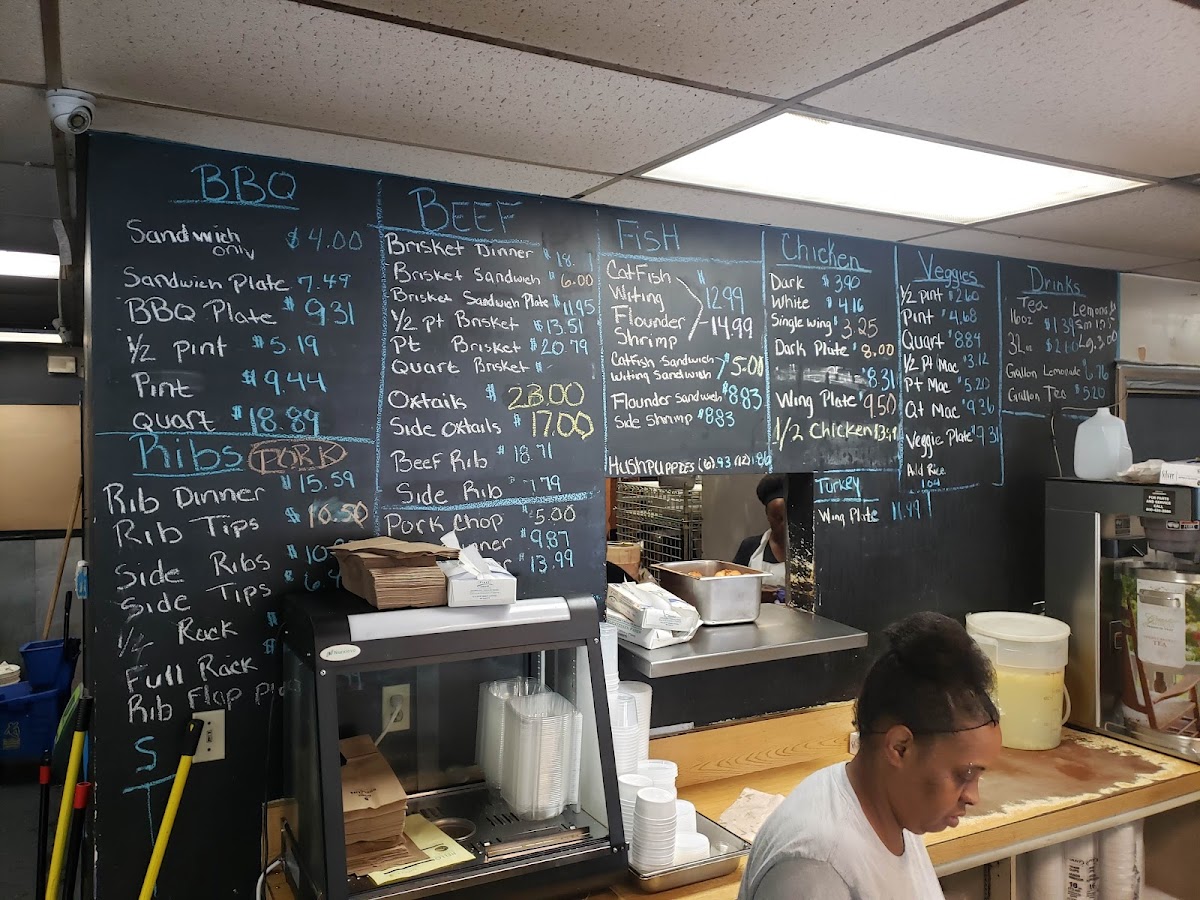 BBQ
Sandwich only $4.00
Sandwich Plate 7.49
BBQ Plate $9.31
1/2 pint $5.19
Pint $9.44
Quart $18.89
Ribs PORK
Rib Dinner $15.59
Rib Tips $10.50
Side Ribs $10.
Side Tips $6.4
1/4 Rack $
Full Rack $
Rib Flap
S
BEEF
Brisket Dinner $18.
Brisket Sandwich $6.00
Brisket Sandwich Plate $11.95
1/2 pt Brisket $13.51
Pt Brisket $20.79
Quart Brisket $
Oxtails $23.00
Side Oxtails $17.00
Beef Rib $18.71
Side Rib $7.79
Pork Chop $5.00
$9.87
$13.99
FISH
CatFish
Witing $12.99
Flounder 14.99
Shrimp
Catfish Sandwich $5.00
Witing Sandwich
Flounder Sandwich $8.83
Side Shrimp $8.83
Hushpuppies (6).93 (12)1.86
Chicken
Dark $3.90
White $4.16
Single Wing $3.25
Dark Plate $8.00
$8.31
Wing Plate $9.50
1/2 Chicken
Turkey
Wing Plate 11.99
Veggies
1/2 pint $2.60
Pint $4.68
Quart $8.84
1/2 Pt Mac $3.12
Pt Mac $5.20
Qt Mac $9.36
Veggie Plate $9.31
Add Rice
1.04
Drinks
Tea
16oz $1.39
3L $2.60
Gallon Lemonade 6.76
Gallon Tea $5.20
TEA